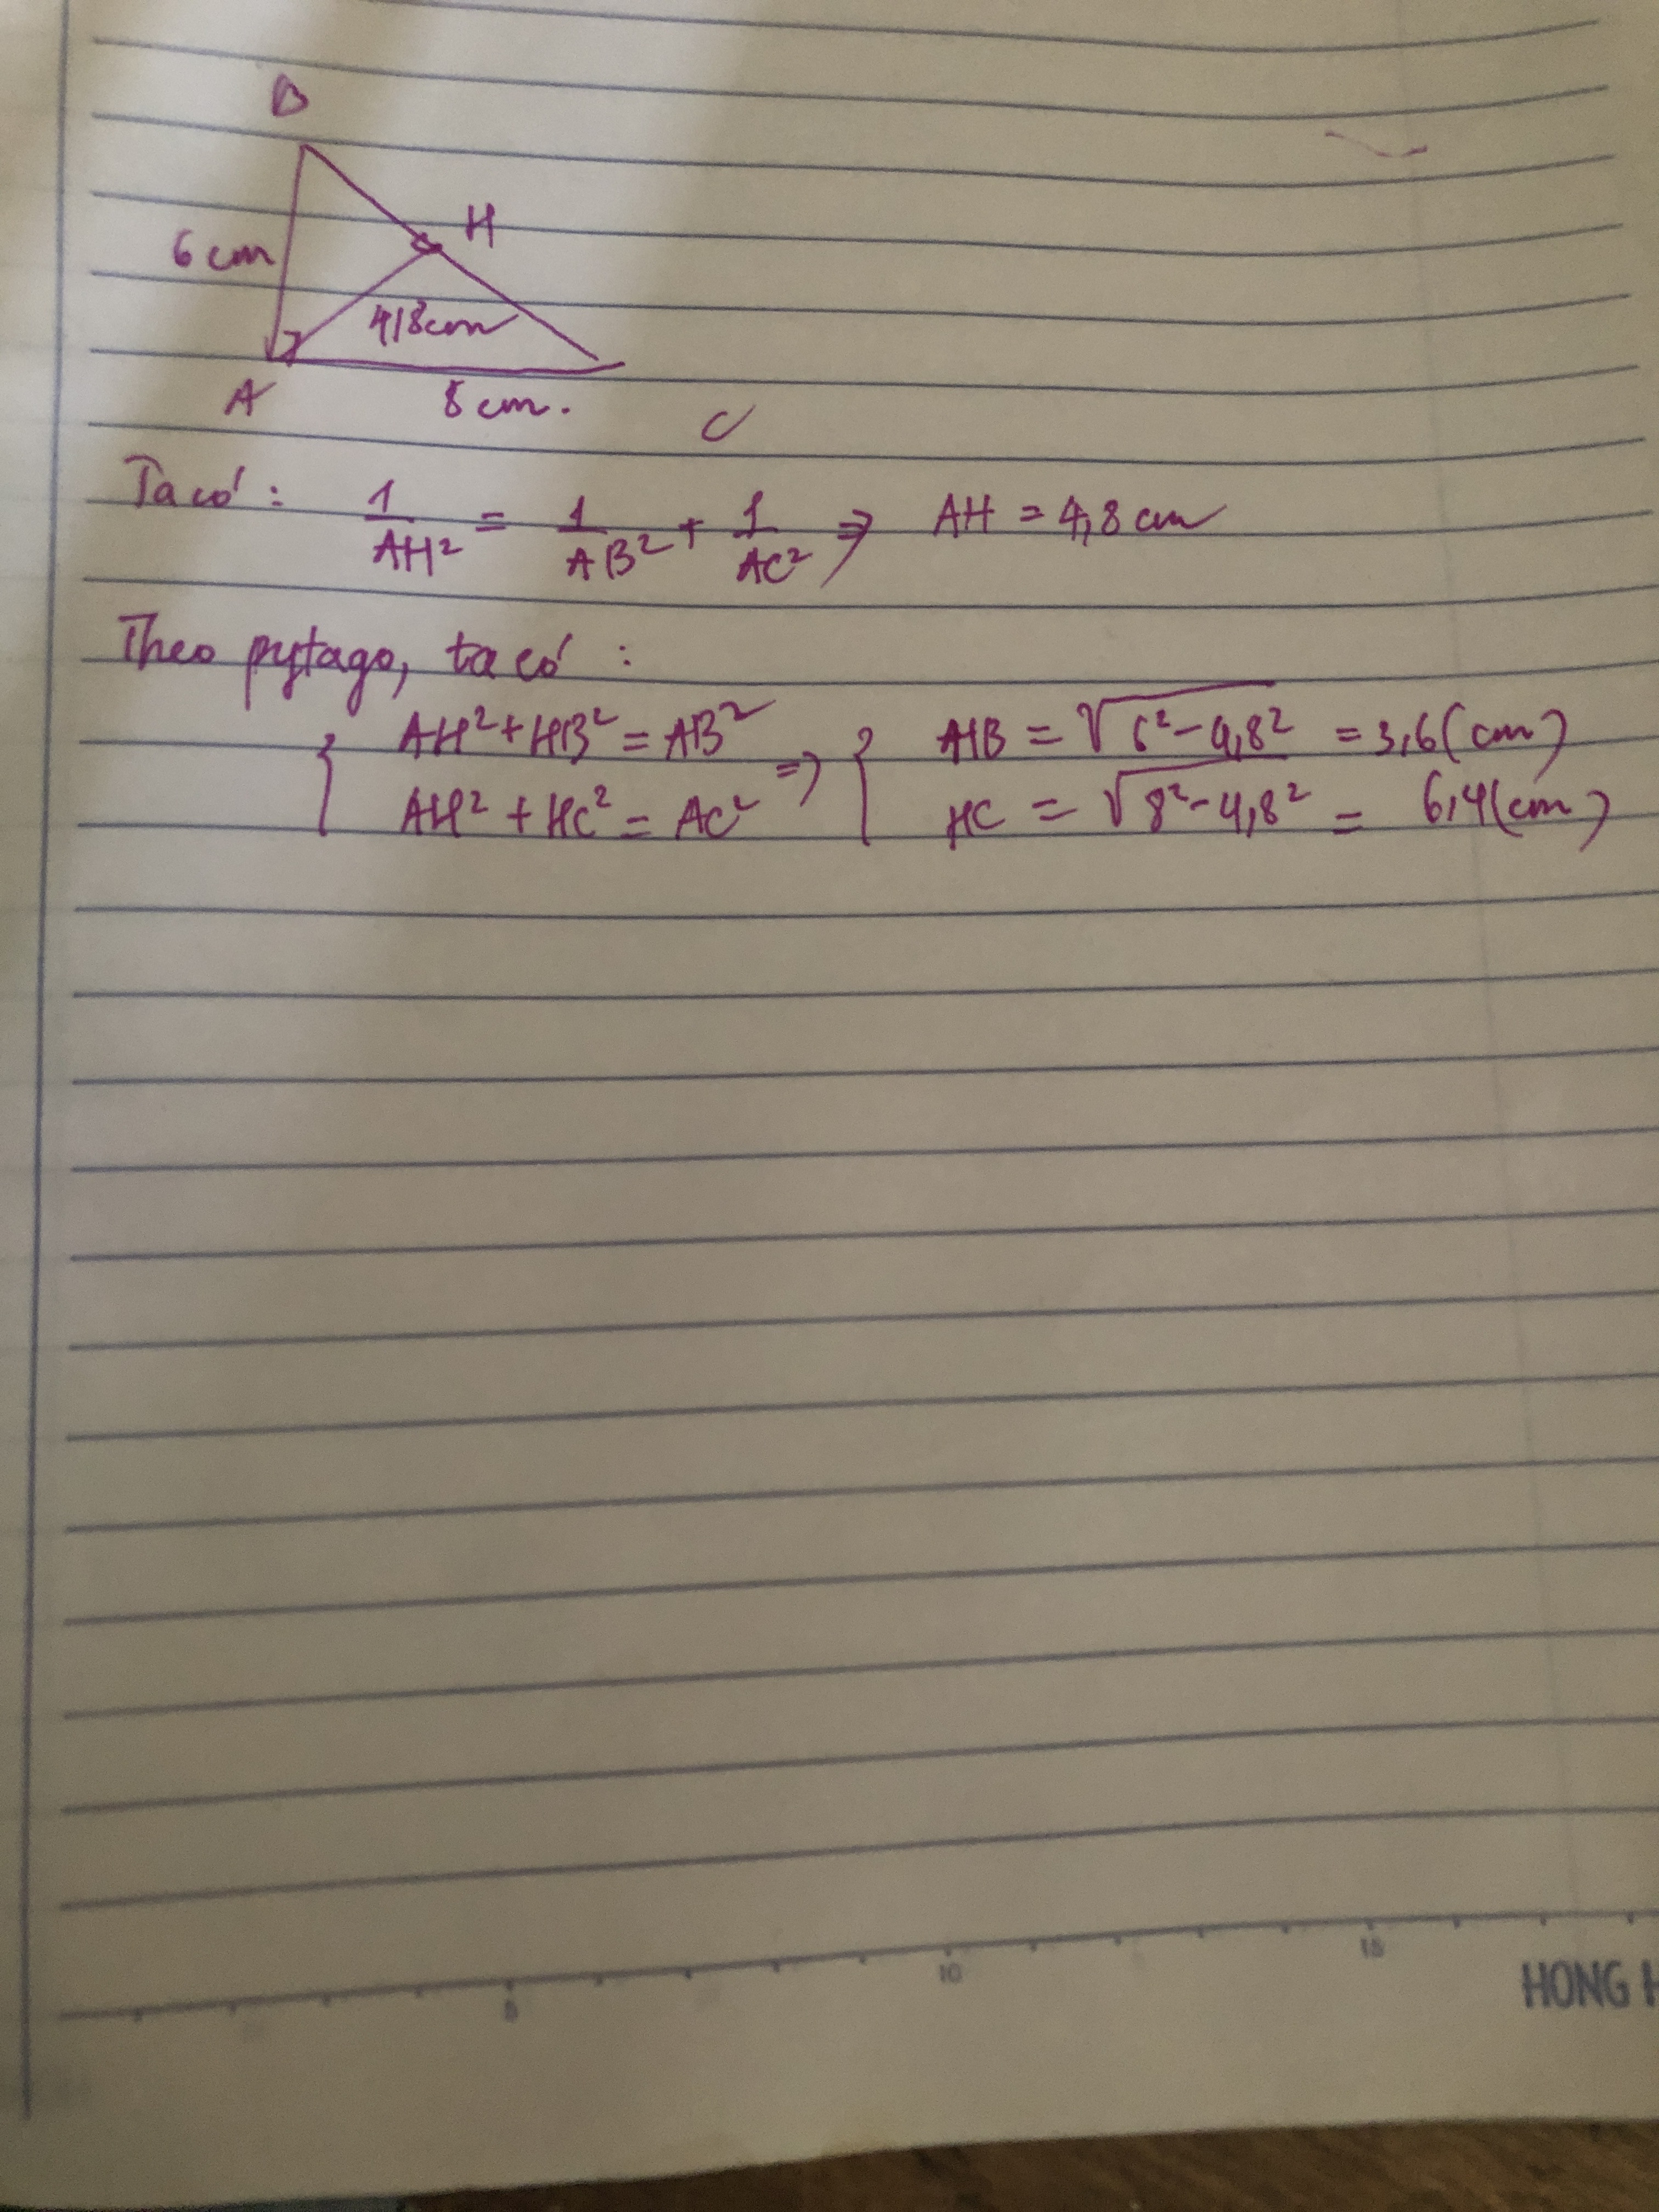 B
H
6 cm
4,8cm
A
8 cm.
C
Ta có: 1/AH² = 1/AB² + 1/AC² => AH = 4,8 cm
Theo pytago, ta có:
{ AH² + HB² = AB² => { HB = √6² - 4,8² = 3,6 (cm)
AH² + HC² = AC² HC = √8² - 4,8² = 6,4 (cm)
5 10 15
HONG H